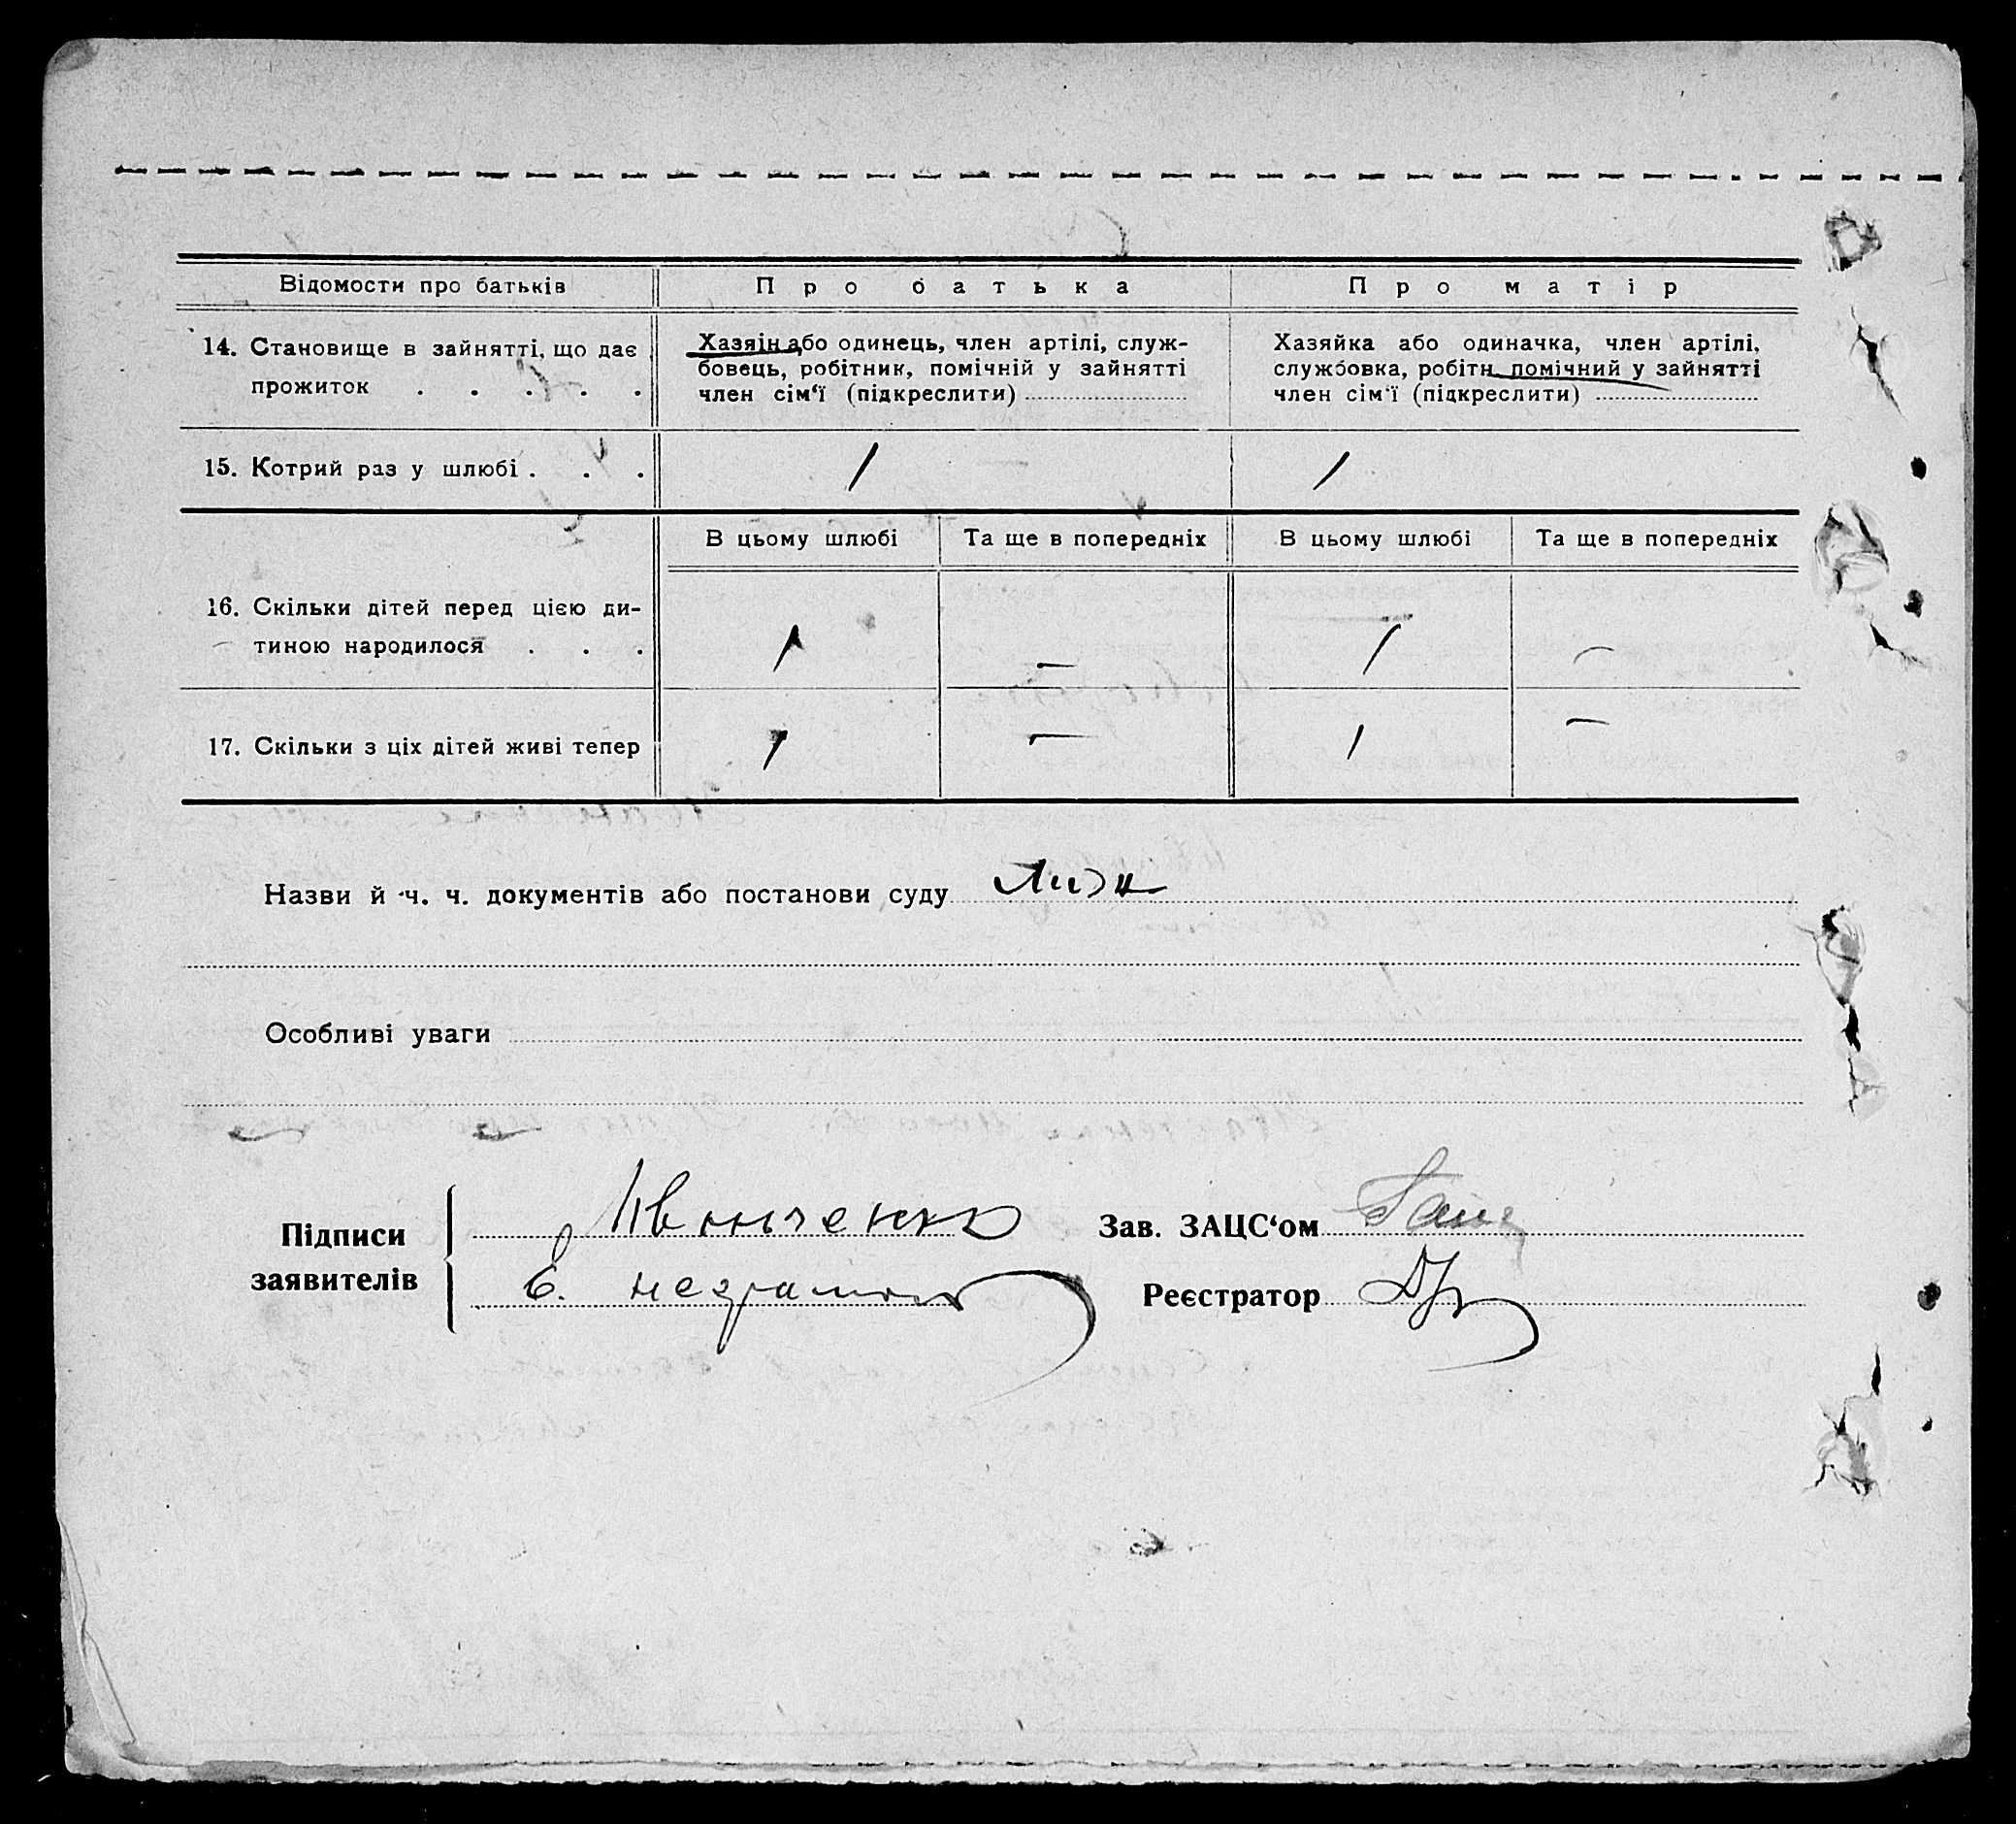 Відомости про батьків Про батька Про матір
14. Становище в зайнятті, що дає прожиток . . . . .
Хазяін або одинець, член артілі, служ-
бовець, робітник, помічній у зайнятті
член сім‘ї (підкреслити)
Хазяйка або одиначка, член артілі,
службовка, робітн. помічний у зайнятті
член сім‘ї (підкреслити)
15. Котрий раз у шлюбі . . . 1 1
В цьому шлюбі Та ще в попередніх В цьому шлюбі Та ще в попередніх
16. Скільки дітей перед цією ди-
тиною народилося . . . 1 — 1 —
17. Скільки з ціх дітей живі тепер 1 — 1 —
Назви й ч. ч. документів або постанови суду
Особливі уваги
Підписи
заявителів
Іванченко
Зав. ЗАЦС‘ом
Реєстратор